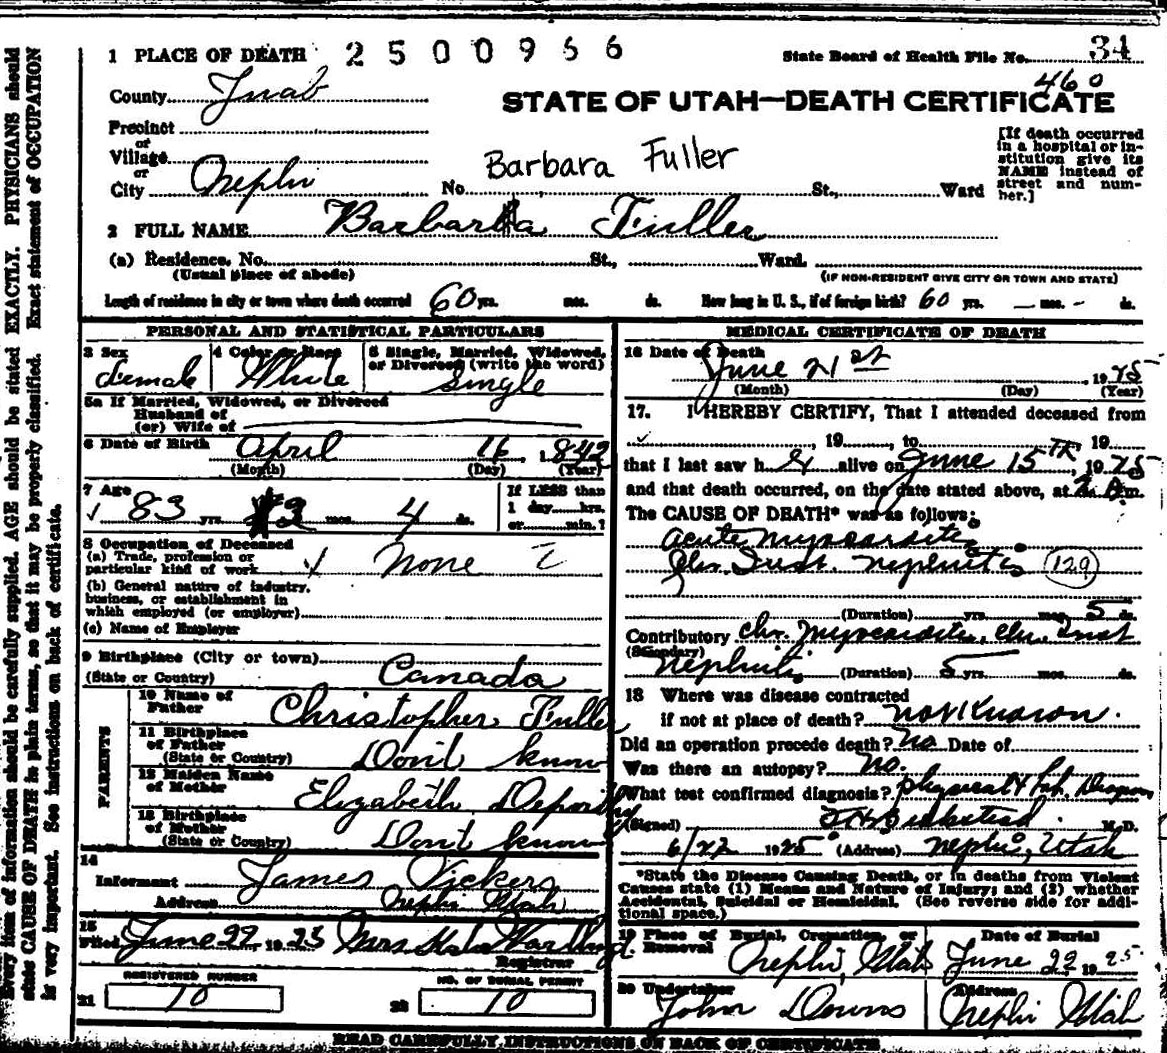 1 PLACE OF DEATH 2500956
State Board of Health File No. 34
460
County Juab
STATE OF UTAH—DEATH CERTIFICATE
Precinct
or
Village
or
City Nephi No. St., Ward
Barbara Fuller
[If death occurred
in a hospital or in-
stitution give its
NAME instead of
street and num-
ber.]
2 FULL NAME Barbara Fuller
(a) Residence. No. St., Ward.
(Usual place of abode) (IF NON-RESIDENT GIVE CITY OR TOWN AND STATE)
Length of residence in city or town where death occurred 60 yrs. mos. ds. How long in U. S., if of foreign birth? 60 yrs. — mos. - ds.
PERSONAL AND STATISTICAL PARTICULARS
3 Sex 4 Color or Race 5 Single, Married, Widowed,
or Divorced (write the word)
Female White Single
5a If Married, Widowed, or Divorced
Husband of
(or) Wife of
6 Date of Birth April 16, 1842
(Month) (Day) (Year)
7 Age If LESS than
83 yrs. 2 mos. 4 ds. 1 day hrs.
or min.?
8 Occupation of Deceased
(a) Trade, profession or
particular kind of work None
(b) General nature of industry,
business, or establishment in
which employed (or employer)
(c) Name of Employer
9 Birthplace (City or town)
(State or Country) Canada
PARENTS
10 Name of
Father Christopher Fuller
11 Birthplace
of Father
(State or Country) Don't know
12 Maiden Name
of Mother Elizabeth
13 Birthplace
of Mother
(State or Country) Don't know
14
Informant James Vickers
Address Nephi Utah
15
Filed June 22 1925 Mrs
Registrar
REGISTERED NUMBER NO. OF BURIAL PERMIT
21 10 22 10
MEDICAL CERTIFICATE OF DEATH
16 Date of Death
June 21st, 1925
(Month) (Day) (Year)
17. I HEREBY CERTIFY, That I attended deceased from
, 19 , to 19
that I last saw her alive on June 15th, 1925
and that death occurred, on the date stated above, at m.
The CAUSE OF DEATH* was as follows:
Acute myocarditis
Chr. Inst. nephritis 129
(Duration) yrs. mos. 5 ds.
Contributory Chr. myocarditis, Chr. Inst
(Secondary)
Nephritis (Duration) 5 yrs. mos. ds.
18 Where was disease contracted
if not at place of death? not known.
Did an operation precede death? No Date of
Was there an autopsy? No.
What test confirmed diagnosis? physical & Lab.
(Signed) M. D.
6/22 1925 (Address) Nephi, Utah
*State the Disease Causing Death, or in deaths from Violent
Causes state (1) Means and Nature of Injury; and (2) whether
Accidental, Suicidal or Homicidal. (See reverse side for addi-
tional space.)
19 Place of Burial, Cremation, or
Removal Date of Burial
Nephi, Utah June 22 1925
20 Undertaker Address
John Downs Nephi Utah
READ CAREFULLY INSTRUCTIONS ON BACK OF CERTIFICATE
Every item of information should be carefully supplied. AGE should be stated EXACTLY. PHYSICIANS should
state CAUSE OF DEATH in plain terms, so that it may be properly classified. Exact statement of OCCUPATION
is very important. See instructions on back of certificate.